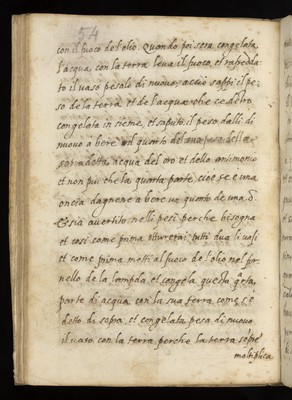 54
con il fuoco del'olio. Quando poi sera congelata
l'acqua, con la terra leva il fuoco, et rafredda
to il uaso pesalo di nuouo, acciò sappi il pe
so de la terra et de l'acqua che ce dētro
congelata in sieme, et saputo il peso dalli di
nuouo a bere un quarto del
sopradetta acqua del oro et dello antimonio
et non piu che la quarta parte, cioe se è una
oncia dagnene a bere un quarto de una
et sia auertito nelli pesi perche bisogna
et cosi come prima otturerai tutti dua li uasi
et come prima metti al fuoco de l'olio nel for
nello de la lampda et congela questa
parte di acqua con la sua terra come s'è
detto di sopra, et congelata pesa di nuouo
il uaso con la terra perche la terra sēpre
moltiplica